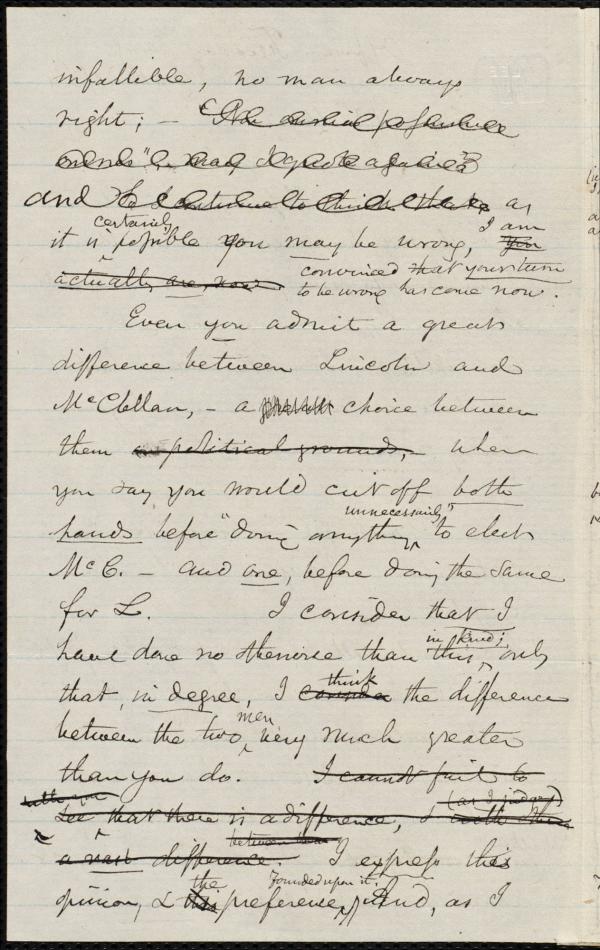 infallible, no man always
right; —
and as
certainly I am
it is possible you may be wrong, you
actually are, now convinced that your turn
to be wrong has come now.
Even you admit a great
difference between Lincoln and
McClellan, — a choice between
them on political grounds, — when
you say you would cut off both
unnecessarily"
hands before "doing anything to elect
McC. — and one, before doing the same
for L. I consider that I
in kind;
have done no otherwise than this, only
think
that, in degree, I consider the difference
men
between the two, very much greater
than you do. I cannot fail to
(as I judge)
see that there is a difference, &
between them
a vast difference. I express this
the Founded upon it.
opinion, & this preference, And, as I